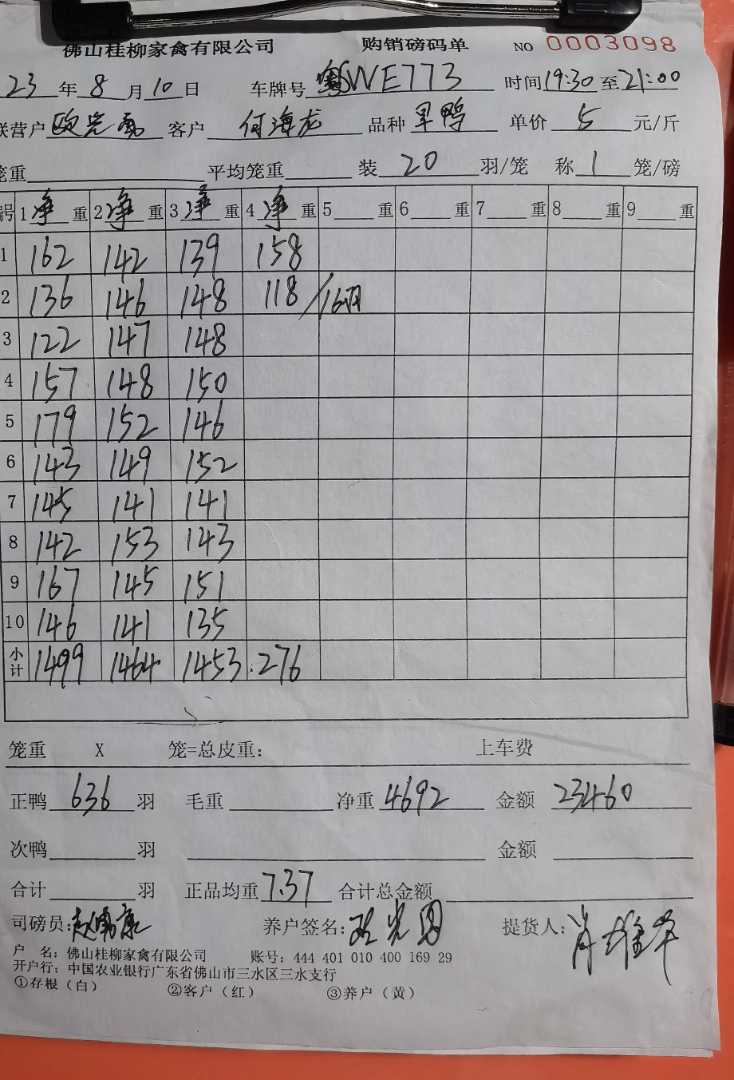 佛山桂柳家禽有限公司 购销磅码单 NO 0003098
23 年 8 月 10 日 车牌号 粤WE773 时间 19:30 至 21:00
联营户 客户 何海龙 品种 旱鸭 单价 5 元/斤
笼重 平均笼重 装 20 羽/笼 称 1 笼/磅
号 1 净 重 2 净 重 3 净 重 4 净 重 5 重 6 重 7 重 8 重 9 重
1 162 142 139 158
2 136 146 148 118 /16羽
3 122 147 148
4 157 148 150
5 179 152 146
6 143 149 152
7 145 141 141
8 142 153 143
9 167 145 151
10 146 141 135
小计 1499 1464 1453 276
笼重 X 笼=总皮重: 上车费
正鸭 636 羽 毛重 净重 4692 金额 23460
次鸭 羽 金额
合计 羽 正品均重 7.37 合计总金额
司磅员: 养户签名: 提货人: 肖雄华
户 名: 佛山桂柳家禽有限公司 账号: 444 401 010 400 169 29
开户行: 中国农业银行广东省佛山市三水区三水支行
①存根(白) ②客户(红) ③养户(黄)